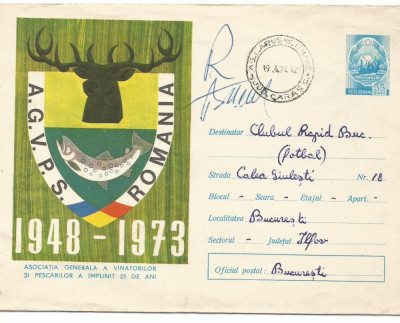 A.G.V.P.S.
ROMANIA
1948 - 1973
ASOCIAȚIA GENERALĂ A VÎNĂTORILOR
ȘI PESCARILOR A ÎMPLINIT 25 DE ANI
R
55
Destinatar Clubul Rapid Buc.
(Fotbal)
Strada Calea Giulești Nr. 18
Blocul - Scara - Etajul - Apart. -
Localitatea București
Sectorul - Județul Ilfov
Oficiul poștal: București